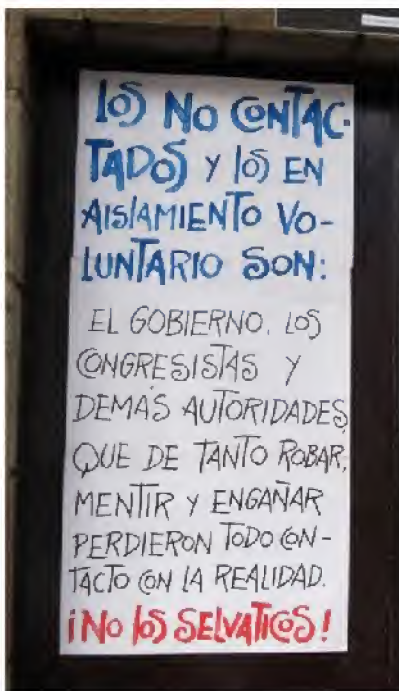 LOS NO CONTAC-
TADOS Y LOS EN
AISLAMIENTO VO-
LUNTARIO SON:
EL GOBIERNO, LOS
CONGRESISTAS Y
DEMÁS AUTORIDADES,
QUE DE TANTO ROBAR,
MENTIR Y ENGAÑAR
PERDIERON TODO CON-
TACTO CON LA REALIDAD.
¡NO LOS SELVATICOS!